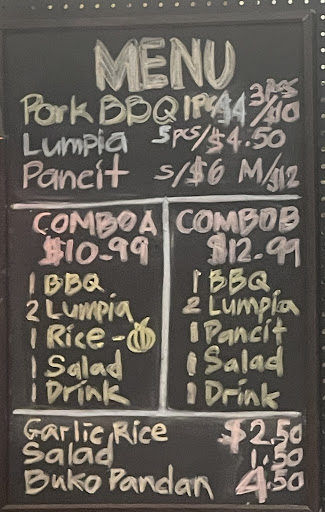 MENU
Pork BBQ 1Pc/$4 3pcs/$10
Lumpia 5pcs/$4.50
Pancit S/$6 M/$12
COMBO A
$10.99
1 BBQ
2 Lumpia
1 Rice -
1 Salad
1 Drink
COMBO B
$12.99
1 BBQ
2 Lumpia
1 Pancit
1 Salad
1 Drink
Garlic Rice $2.50
Salad 1.50
Buko Pandan 4.50